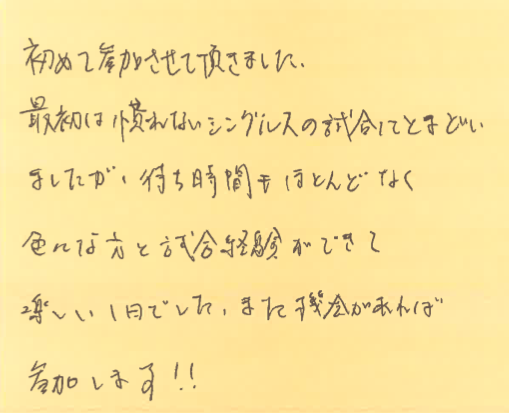 初めて参加させて頂きました、
最初は慣れないシングルスの試合にとまどい
ましたが、待ち時間もほとんどなく
色んな方と試合経験ができて
楽しい1日でした、また機会があれば
参加します!!